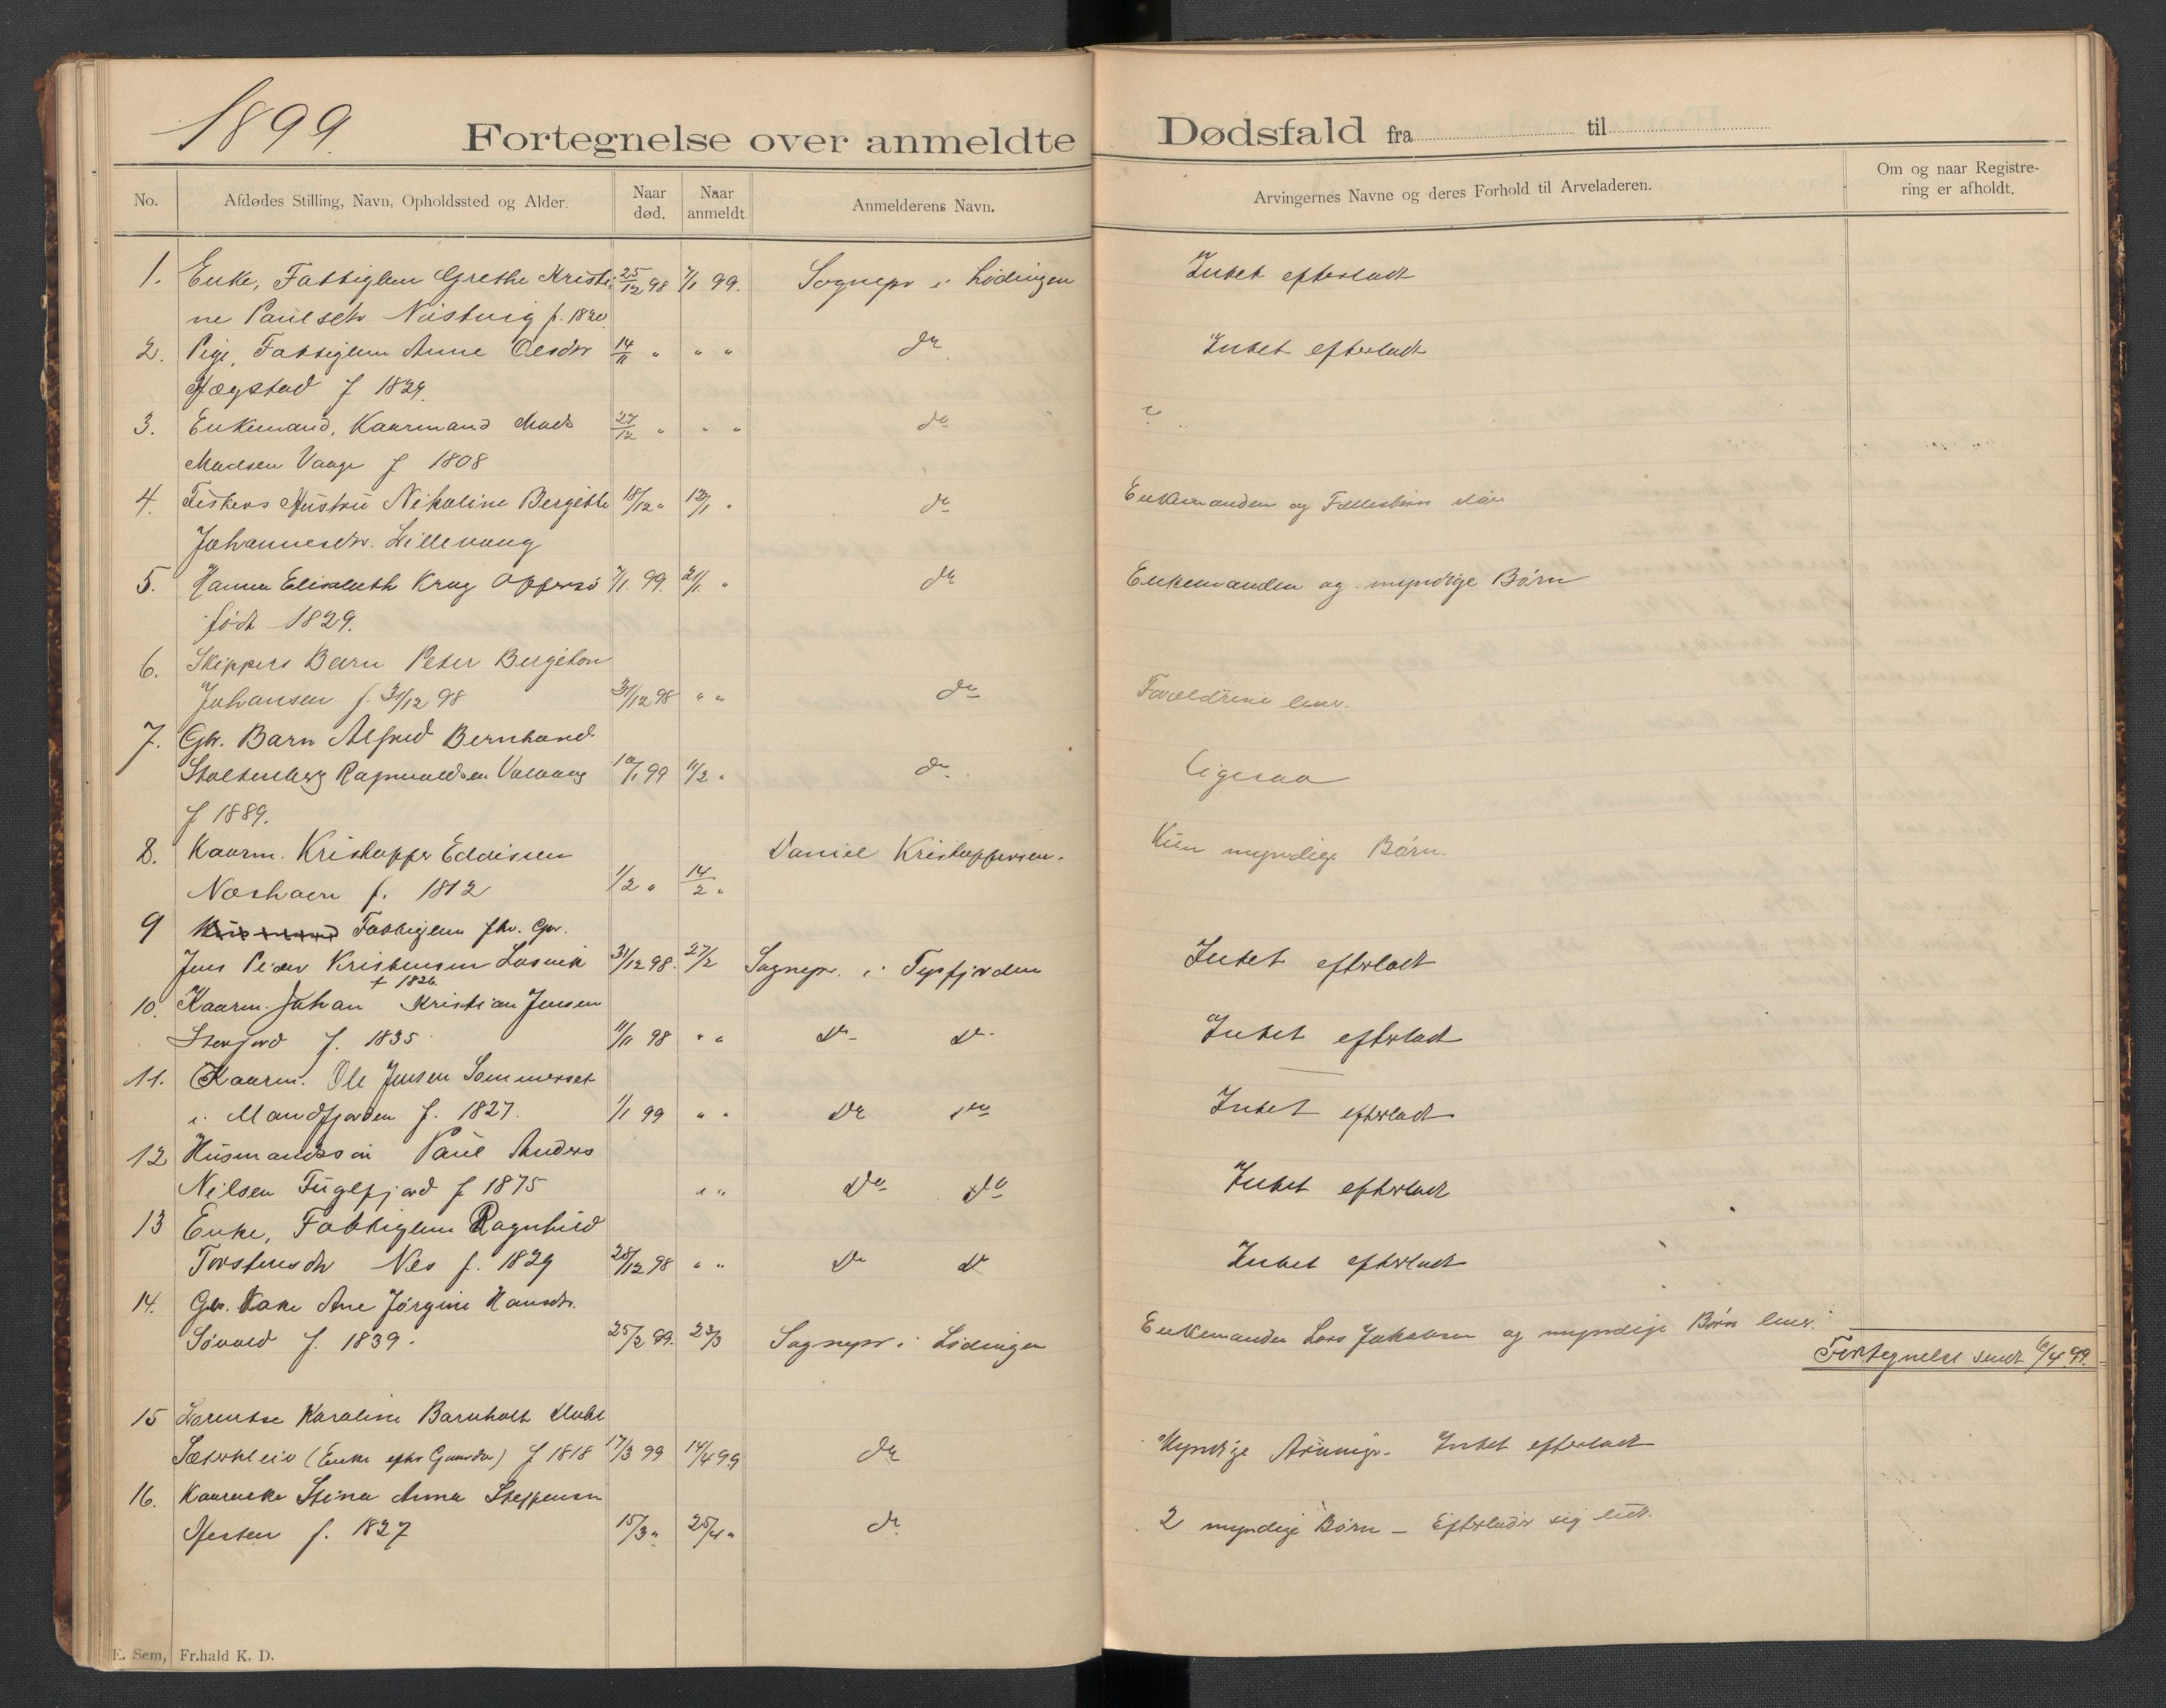 1899.
Fortegnelse over anmeldte Dødsfald fra til
No. Afdødes Stilling, Navn, Opholdssted og Alder. Naar død. Naar anmeldt Anmelderens Navn. Arvingernes Navne og deres Forhold til Arveladeren. Om og naar Registrering er afholdt.
1. Enke, Fattiglem Grethe Kristi- 25/12 98 7/1 99. Sognepr i Lødingen Intet efterladt
ne Paulsdtr f. 1820.
2. Pige, Fattiglem Anne Olsdtr 14/11 " " " do Intet efterladt
Hægstad f 1829.
3. Enkemand, Kaarmand Mads 27/12 " " " do ?
Madsen Vaage f 1808
4. Fiskers Hustru Nikoline Bergitte 18/12 " 13/1 " do Enkemanden og Fællesbørn
Johannesdtr. Lillevang
5. Hanna Elisabeth Krag Offersø 7/1. 99. 21/1. " do Enkemanden og myndige Børn
født 1829.
6. Skippers Barn Peter Bergiton
Johansen f. 31/12 98 31/12 98 " " do Forældrene lever.
7. Gbr. Barn Alfred Bernhard
Stoltenberg Ragnvaldsen 10/1 99 11/2 " do Ligesaa
f 1889.
8. Kaarm. Kristoffer Eddissen Daniel Kristoffersen. Kun myndige Børn.
f. 1812 1/2 " 14/2 "
9 Fattiglem fhv. Gbr.
Jens Peder Kristensen 31/12 98. 27/2 Sognepr. i Tysfjorden Intet efterladt
f 1826.
10. Kaarm. Johan Kristian Jensen
f. 1835 11/11 98 " " do do Intet efterladt
11. Kaarm. Ole Jensen Sommerset
i Mandfjorden f. 1827. 1/1 99 " " do do Intet efterladt
12 Husmandssøn Paul Anders
Nilsen Fuglfjord f 1875 " " do do Intet efterladt
13 Enke, Fattiglem Ragnhild
Torstensdtr Nes f. 1829 28/12 98 " " do do Intet efterladt
14. Gbr. Kone Ane Jørgine Hansdtr.
f. 1839. 25/2 99. 23/3 Sognepr i Lødingen Enkemanden Lars Jakobsen og myndige Børn lever.
Fortegnelse sendt 6/4 99.
15 Lorentse Karoline Barnholt
(Enke efter) f 1818 17/3 99 14/4 99 do Myndige Arvinger. Intet efterladt
16. Kaarenke Stina Anna Steffensen
f. 1827 15/3 " 25/4 " do 2 myndige Børn – Efterlader sig lidt.
E. Sem, Fr.hald K. D.